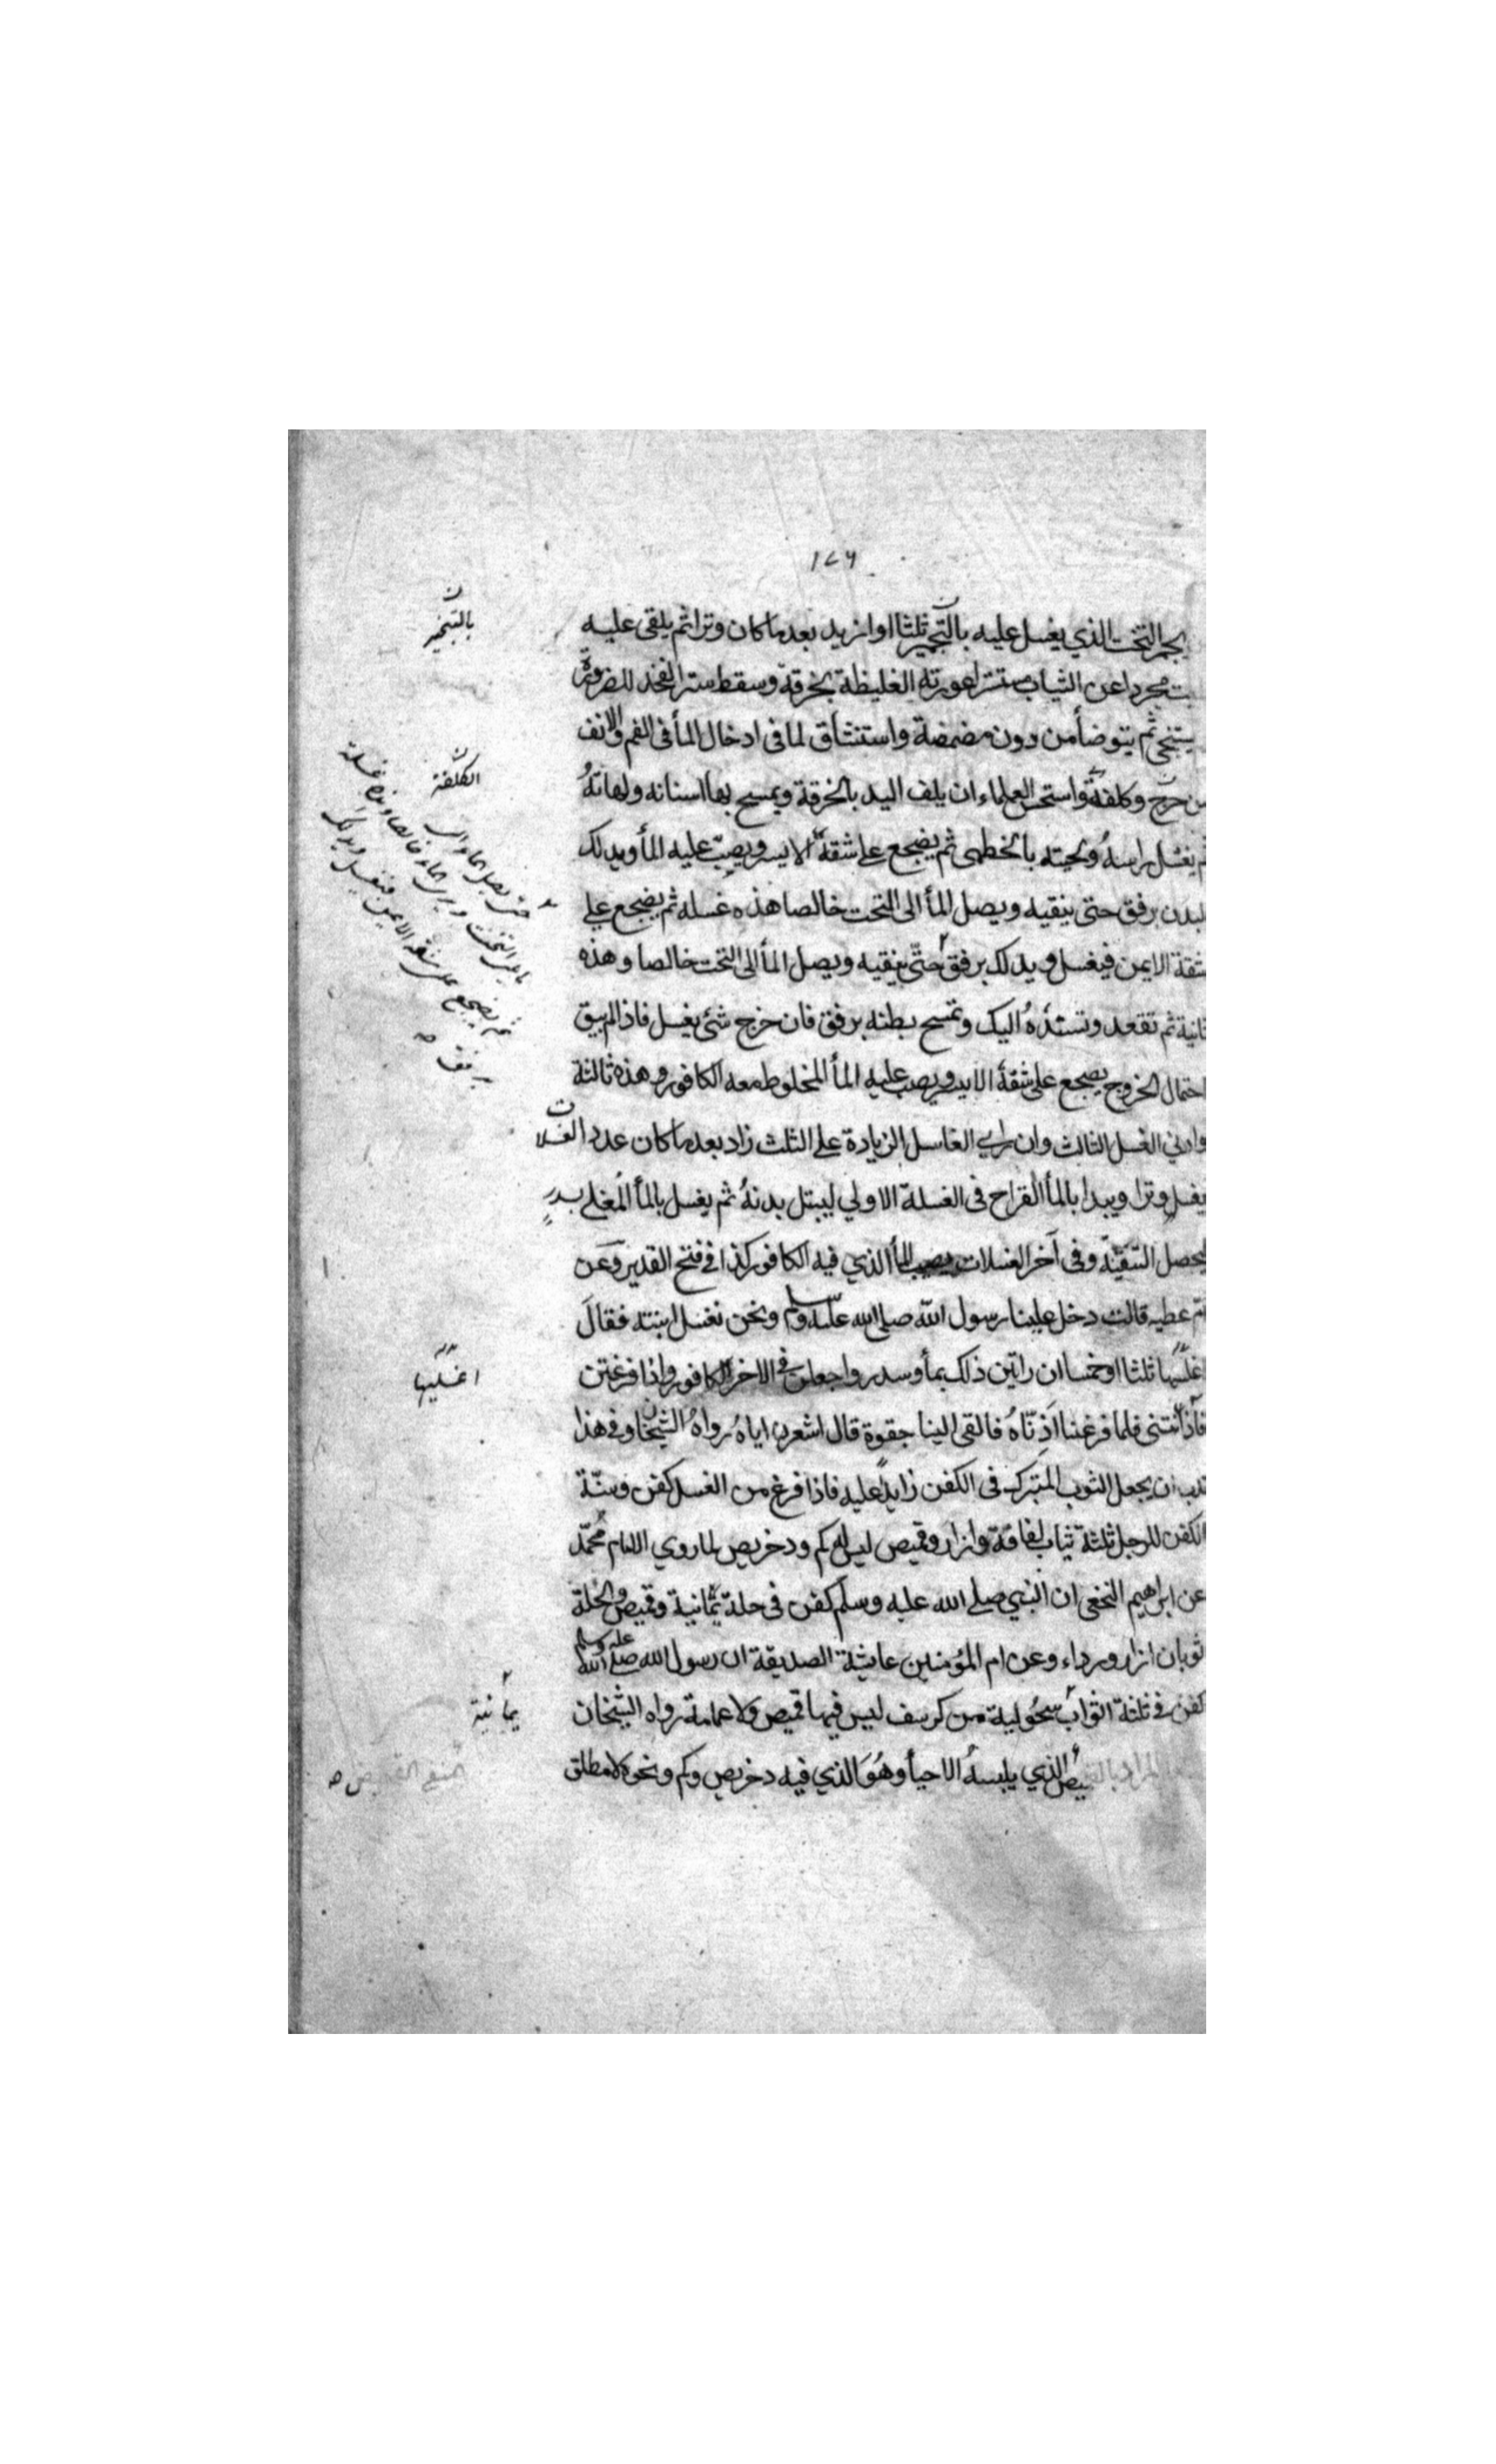 ١٧٦
يجمر التخت الذي يغسل عليه بالتجمير ثلثا او ازيد بعد ما كان وترا ثم يلقى عليه
مجردا عن الثياب مستترا عورته الغليظة بخرقة وسقط ستر الفخذ للضرورة
يستنجى ثم يتوضأ من دون مضمضة واستنشاق لما فى ادخال المأ فى الفم والانف
من حرج وكلفة واستحسن العلماء ان يلف اليد بالخرقة ويمسح بها اسنانه ولهاته
ثم يغسل راسه ولحيته بالخطمى ثم يضجع على شقة الايسر ويصب عليه المأ ويدلك
البدن برفق حتى ينقيه ويصل المأ الى التخت خالصا هذه غسله ثم يضجع على
شقة الايمن فيغسل ويدلك برفق حتى ينقيه ويصل المأ الى التخت خالصا وهذه
ثانية ثم تقعد وتسنده اليك وتمسح بطنه برفق فان خرج شئ يغسل فاذا لم يبق
احتمال الخروج يضجع على شقة الايسر ويصب عليه المأ المخلوط معه الكافور وهذه ثالثة
وادنى الغسل الثالث وان راى الغاسل الزيادة على الثلث زاد بعد ما كان عدد الغسلات
يغسل وترا ويبدا بالمأ القراح فى الغسلة الاولي ليبتل بدنه ثم يغسل بالمأ المغلى بسدر
ليحصل التنقية وفى آخر الغسلات يصب المأ الذي فيه الكافور كذا فى فتح القدير وعن
ام عطيه قالت دخل علينا رسول الله صلى الله عليه وسلم ونحن نغسل ابنته فقال
اغسلنها ثلثا او خمسا ان راتين ذلك بمأ وسدر واجعلن فى الاخر الكافور واذا فرغتن
فآذنتنى فلما فرغنا اذنّاه فالقى الينا حقوة قال اشعرن اياه رواه الشيخان وفى هذا
ندب ان يجعل الثوب المتبرك فى الكفن زايدا عليه فاذا فرغ من الغسل كفن وسنة
الكفن للرجل ثلثة ثياب لفافة وازار وقميص ليس له كم ودخريص لما روي الامام محمد
عن ابراهيم النخعى ان النبي صلے الله عليه وسلم كفن فى حلة يمانية وقميص والحلة
ثوبان ازار ورداء وعن ام المؤمنين عايشة الصديقة ان رسول الله صلى الله عليه وسلم
كفن فى ثلثة اثواب سحولية من كرسف ليس فيها قميص ولا عمامة رواه الشيخان
المراد بالقميص الذي يلبسه الاحيأ وهو الذي فيه دخريص وكم ونحوه لا مطلق
بالتجمير
الكلفة
حتى يصل الماء الى
ما يلى التخت ويرى الماء خالصا وهذه غسلة
ثم يضجع على شقه الايمن فيغسل ويدلك
برفق
اغسليها
يمانية
القميص